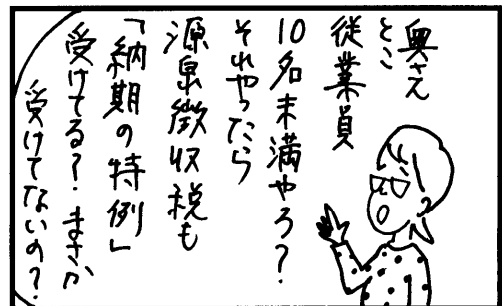 奥さん
とこ
従業員
10名未満やろ？
それやったら
源泉徴収税も
「納期の特例」
受けてる？まさか
受けてないの？